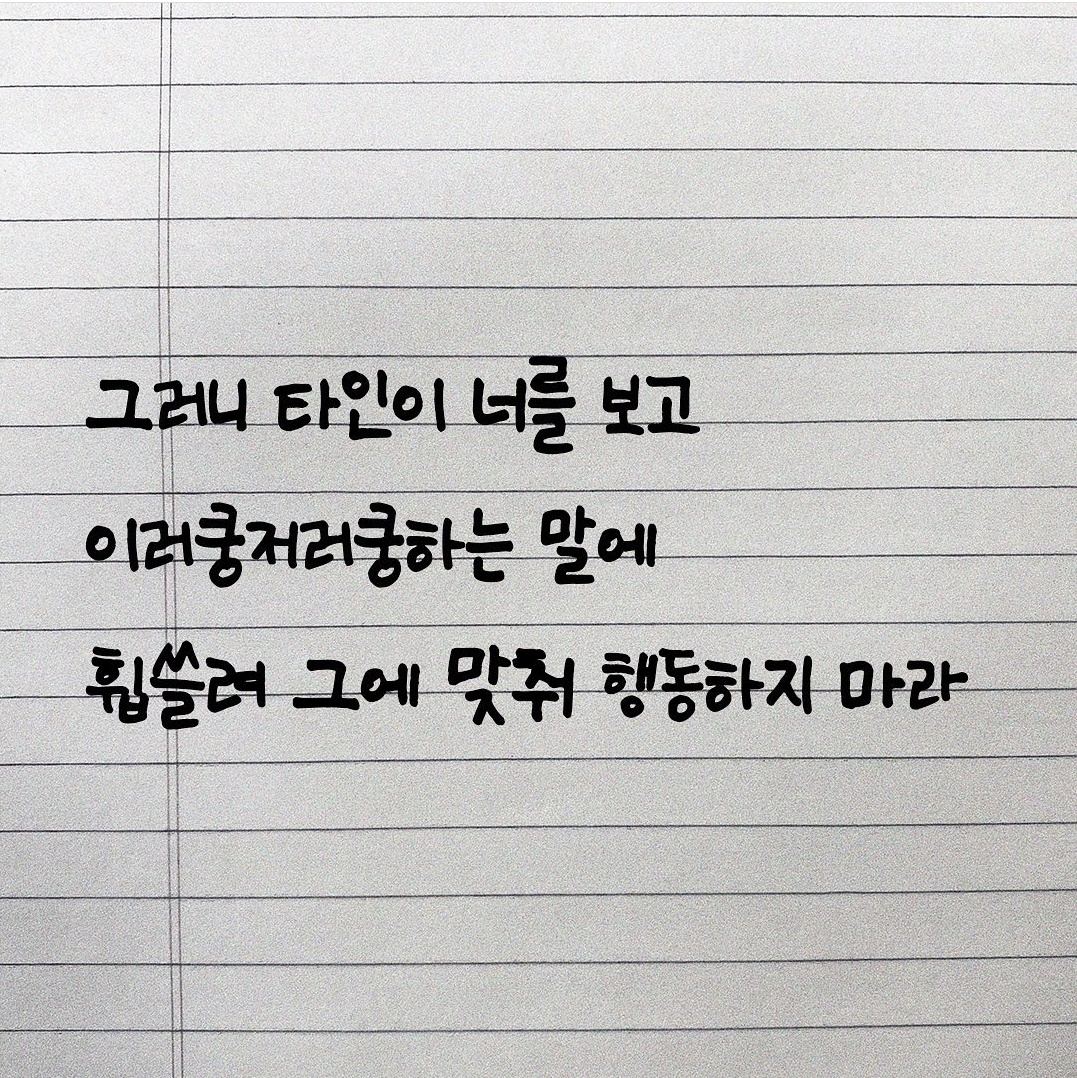 그러니 타인이 너를 보고
이러쿵저러쿵하는 말에
휩쓸려 그에 맞춰 행동하지 마라